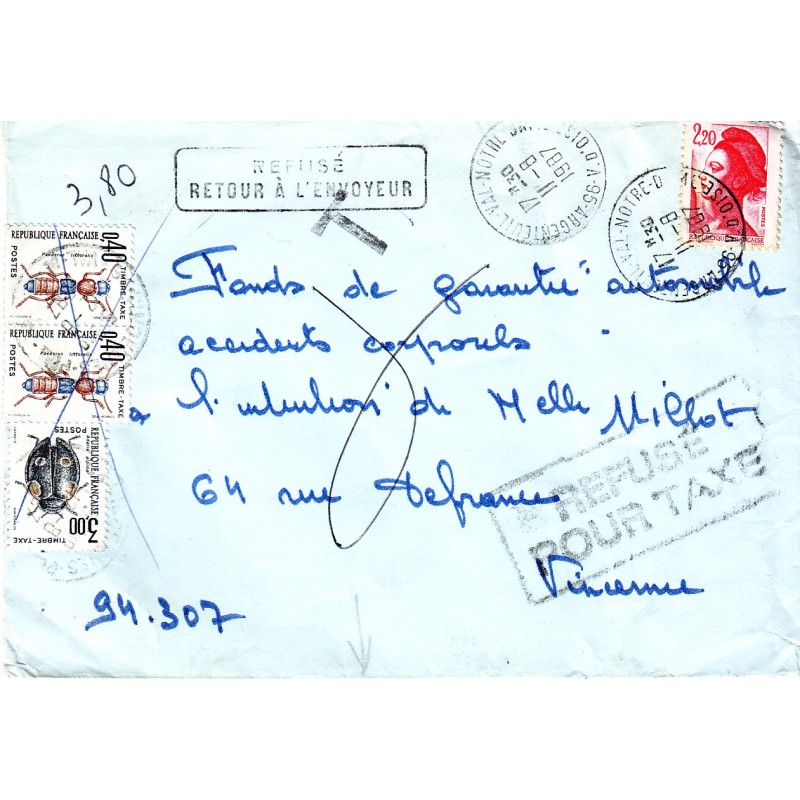 3,80
REFUSÉ
RETOUR À L'ENVOYEUR
T
95-ARGENTEUIL-VAL-NOTRE-DAME
VAL D'OISE
17 H 30
11-8
1987
2,20
POSTES
17 H 30
11-8
1987
REPUBLIQUE FRANÇAISE
0,40
POSTES
Paederus littoralis
TIMBRE-TAXE
REPUBLIQUE FRANÇAISE
0,40
POSTES
Paederus littoralis
TIMBRE-TAXE
REPUBLIQUE FRANÇAISE
POSTES
3,00
TIMBRE-TAXE
Fonds de garantie automobile
accidents corporels
a l'intention de Melle Millot
64 rue Defrance
Vincenne
94.307
REFUSÉ
POUR TAXE